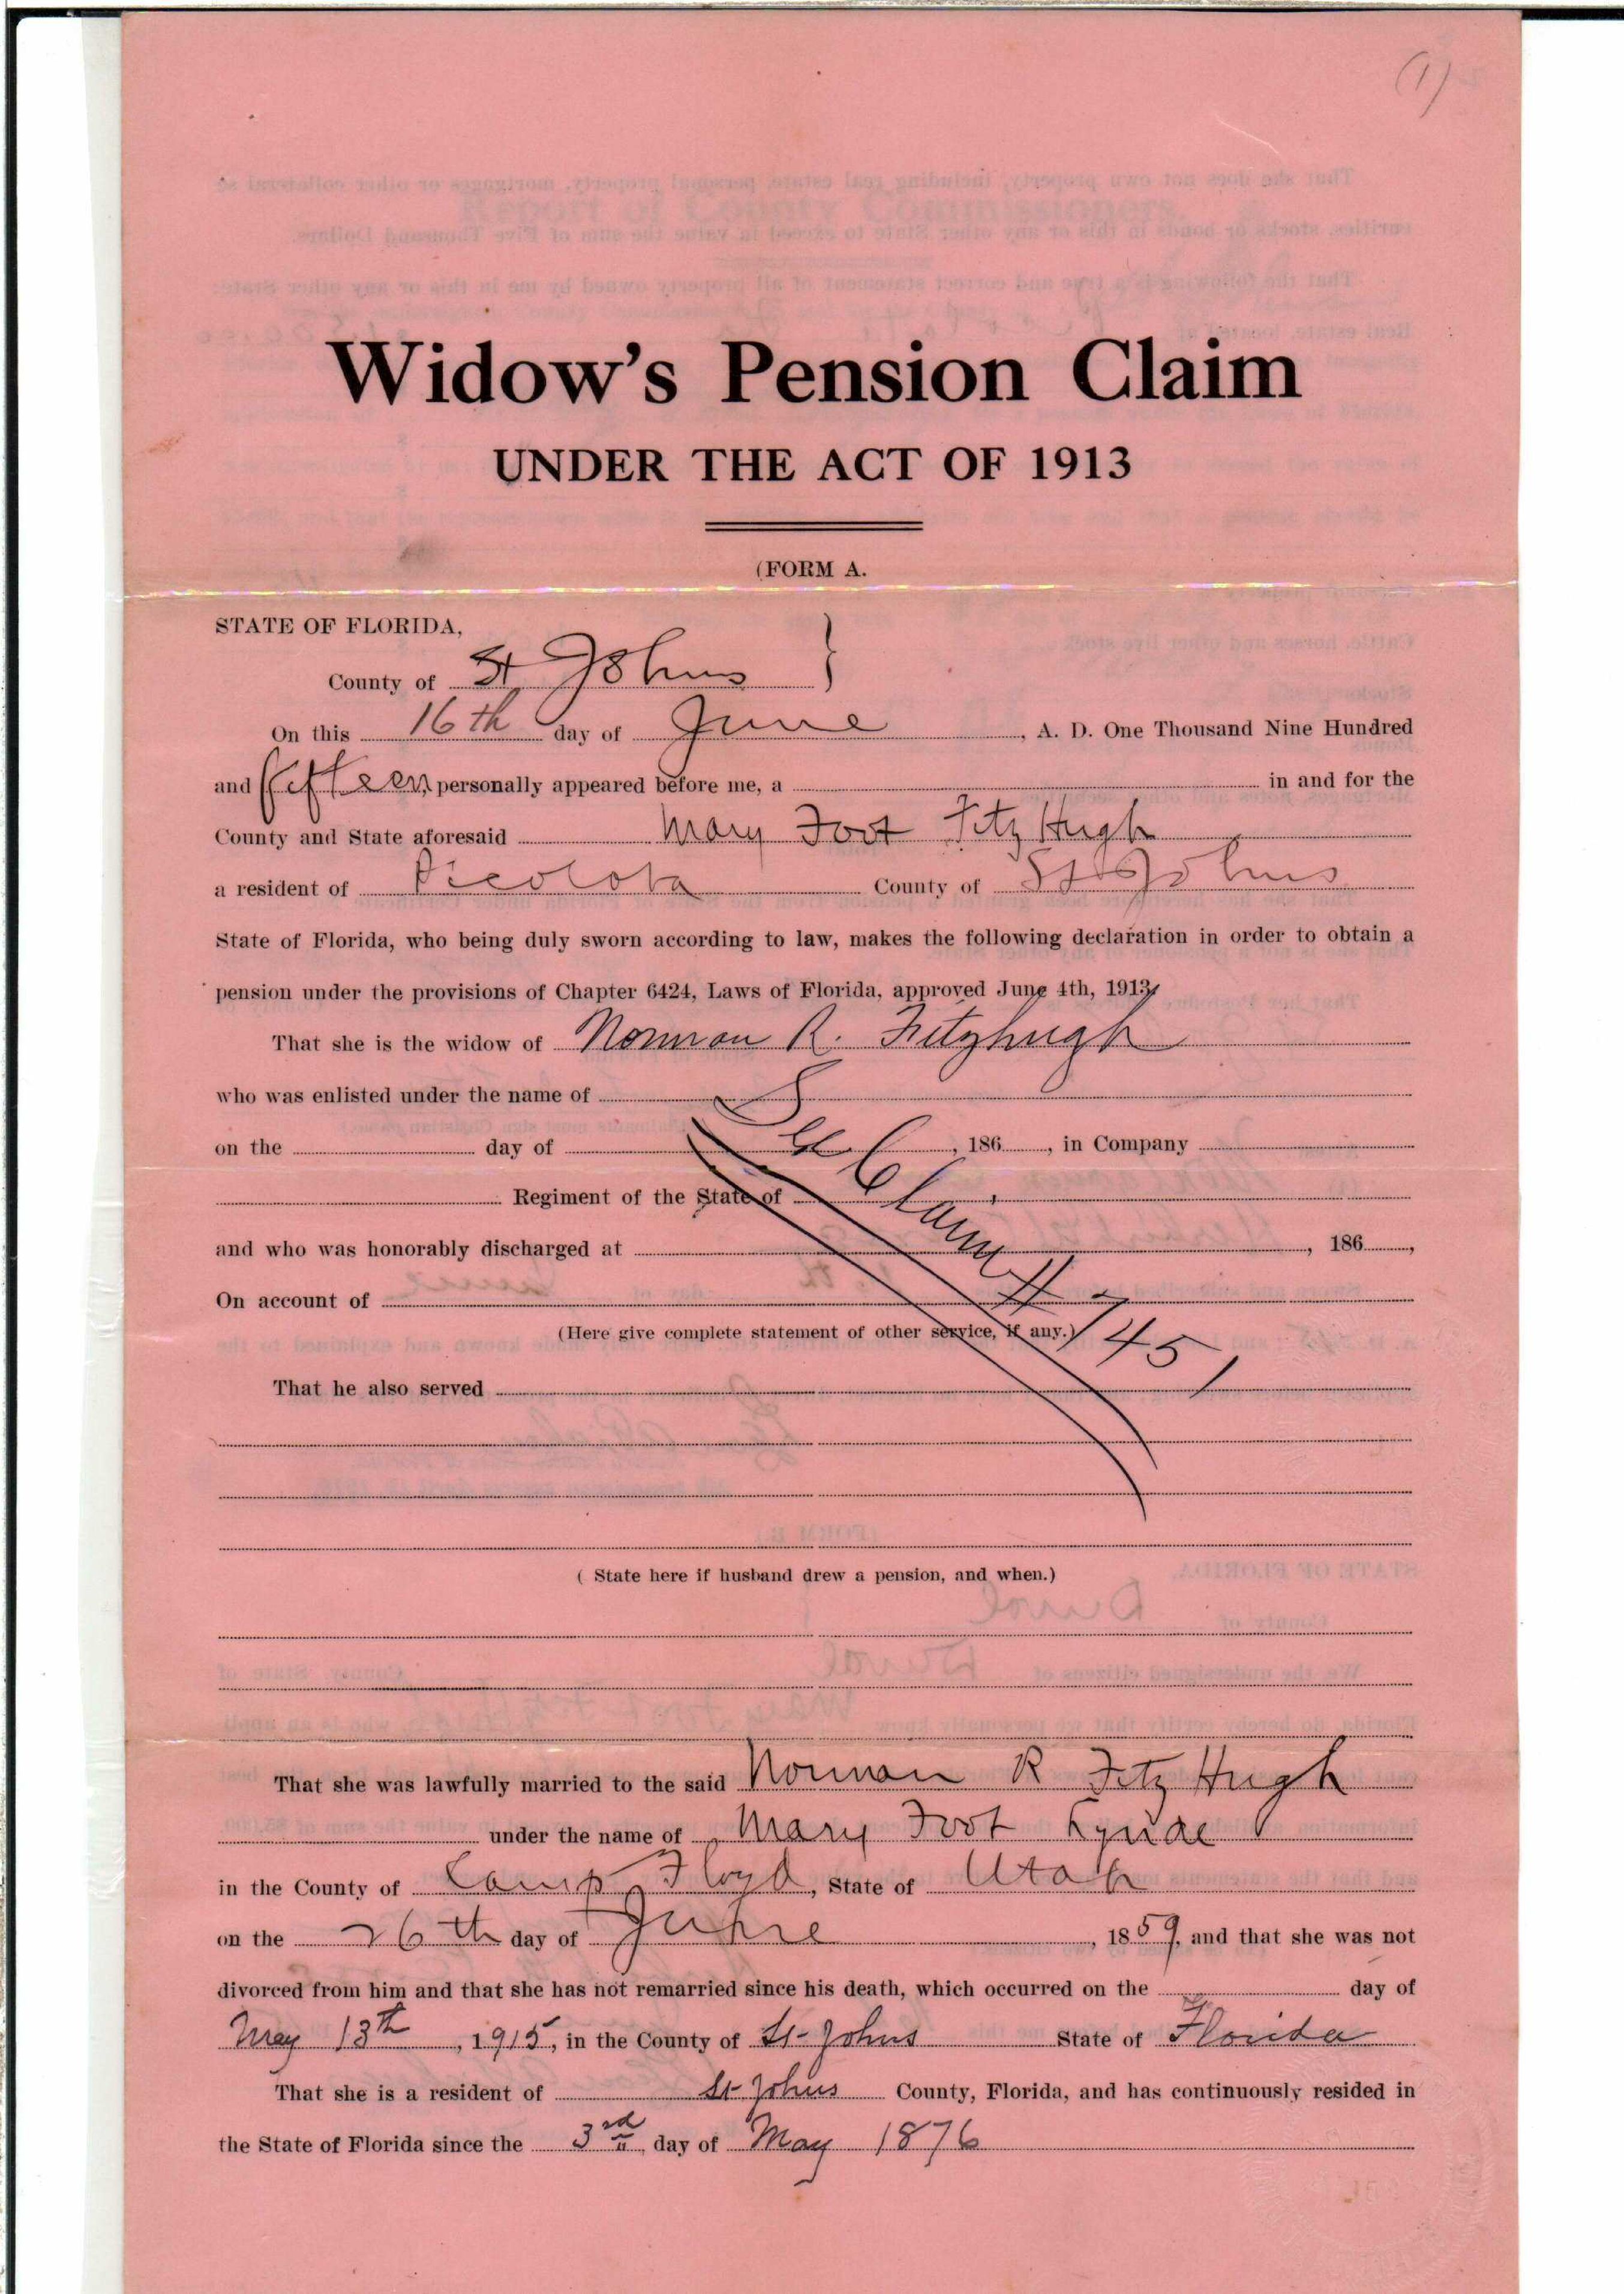 (1)
Widow's Pension Claim
UNDER THE ACT OF 1913
(FORM A.
STATE OF FLORIDA,
County of St Johns }
On this 16th day of June, A. D. One Thousand Nine Hundred
and fifteen, personally appeared before me, a in and for the
County and State aforesaid Mary Foot Fitz Hugh
a resident of Picolota County of St Johns
State of Florida, who being duly sworn according to law, makes the following declaration in order to obtain a
pension under the provisions of Chapter 6424, Laws of Florida, approved June 4th, 1913,
That she is the widow of Norman R. Fitzhugh
who was enlisted under the name of
on the day of , 186 , in Company
Regiment of the State of
and who was honorably discharged at , 186 ,
On account of
See Claim # 7451
(Here give complete statement of other service, if any.)
That he also served
( State here if husband drew a pension, and when.)
That she was lawfully married to the said Norman R Fitz Hugh
under the name of Mary Foot Lynde
in the County of Camp Floyd, State of Utah
on the 26th day of June, 1859, and that she was not
divorced from him and that she has not remarried since his death, which occurred on the day of
May 13th, 1915, in the County of St-Johns State of Florida
That she is a resident of St Johns County, Florida, and has continuously resided in
the State of Florida since the 3rd day of May 1876